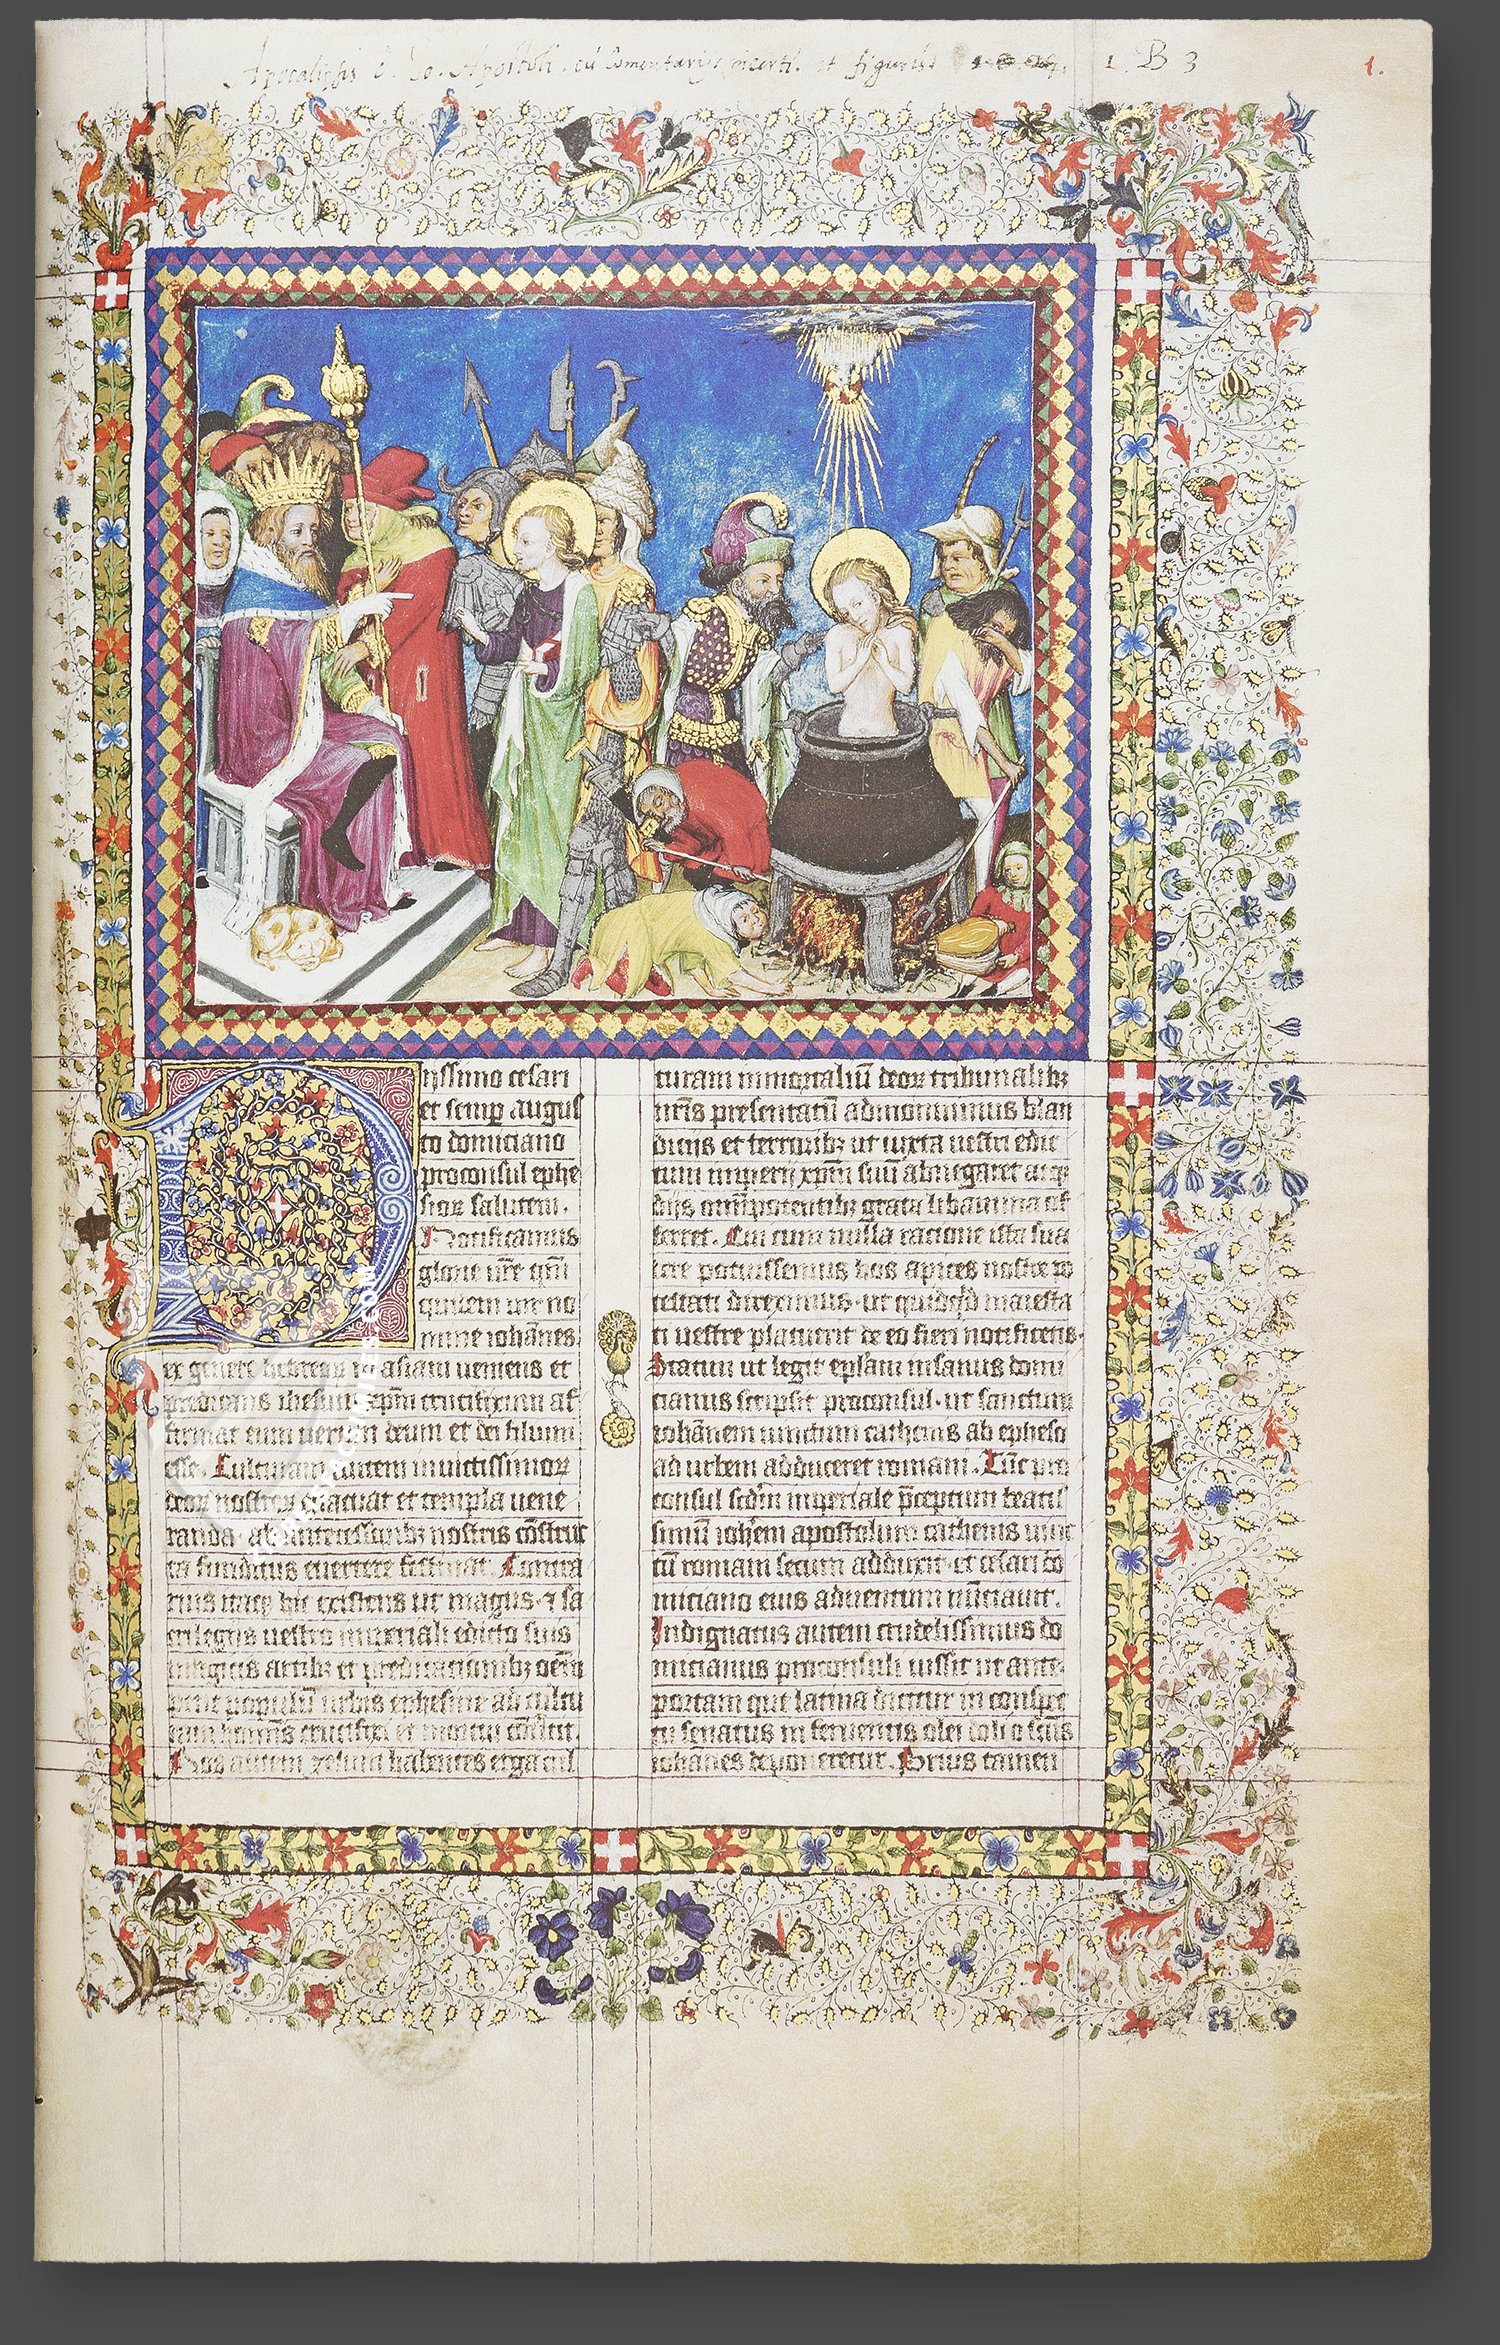 Apocalipsis S. Io. Apostoli. cū Comentarijs incerti. et figuris 1. B 3
1.
Dijssimo cesari
et semp augus
to domiciano
proconsul ephe
sior salutem.
Notificamus
glorie vr̄e qm̄
quidem vir no
mine iohānes
ex genere hebreor in asiam veniens et
predicans ihesum xp̄m crucifixum af
firmat eum verum deum et dei filium
esse. Culturam autem invictissimor
deor nostror evacuat et templa vene
randa ab antecessoribꝫ nostris cōstruc
ta funditus evertere festinat. Contra
rius itaqꝫ hic existens ut magus ⁊ sa
crilegus vestro imperiali edicto suis
magicis artibꝫ et predicationibꝫ oēm
pene populū urbis ephesine ad cultū
cuiusdam hominis crucifixi et mortui
Nos autem zelum habentes erga cul
turam immortaliū deor tribunalibꝫ
nr̄is presentatū admonuimus blan
dicijs et terroribꝫ ut iuxta vestri edic
tum imperij xp̄m suū abnegaret atqꝫ
dijs om̄ipotentibꝫ grata libamina of
ferret. Cui cum nulla racione ista sua
dere potuissemus hos apices nostre po
testati direximus. ut quidq̄d maiesta
ti vestre placuerit de eo fieri notificetis.
Statim ut legit epl̄am insanus domi
cianus scripsit proconsul. ut sanctum
iohānem vinctum cathenis ab epheso
ad urbem adduceret romam. Tūc pro
consul scdm̄ imperiale p̄ceptum beatis
simū ioh̄em apostolum cathenis vinc
tū romam secum adduxit. et cesari do
miciano eius adventum nūciavit.
Indignatus autem crudelissimus do
micianus proconsuli iussit ut ante
portam que latina dicitur in conspec
tu senatus in ferventis olei dolio scūs
iohānes deponeretur. Prius tamen